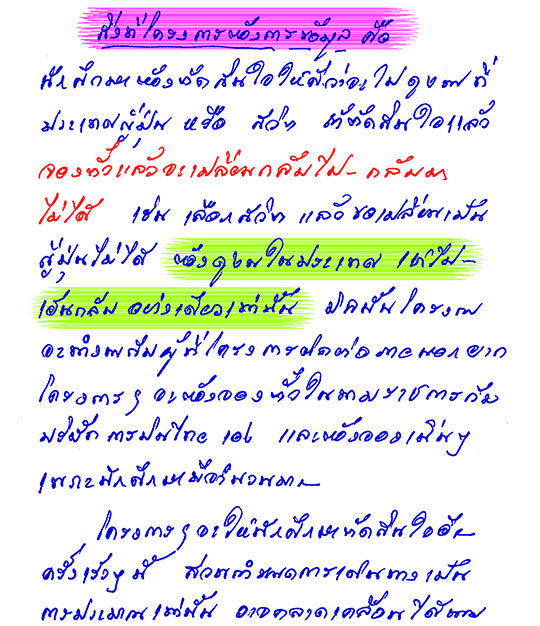 สิ่งที่โครงการต้องการข้อมูล คือ
นักศึกษาต้องตัดสินใจให้ดีว่าจะไปดูงานที่
ประเทศญี่ปุ่น หรือ สวีท ถ้าตัดสินใจแล้ว
จองตั๋วแล้วจะเปลี่ยนกลับไป-กลับมา
ไม่ได้ เช่น เลือก แล้วขอเปลี่ยนเป็น
ญี่ปุ่นไม่ได้ ต้องดูงานในประเทศ ไป-
เย็นกลับ อย่างเดียวเท่านั้น
จะทำงานกับผู้ที่โครงการติดต่อภายนอกยาก
โครงการฯ จะต้องจองตั๋วในนามราชการกับ
บริษัทการบินไทย เอง และต้องจองเนิ่นๆ
เพราะนักศึกษามีจำนวนมาก
โครงการฯ จะให้นักศึกษาตัดสินใจอีก
ครั้งเร็วๆ นี้ ส่วนกำหนดการเดินทางเป็น
การประมาณเท่านั้น อาจคลาดเคลื่อนได้